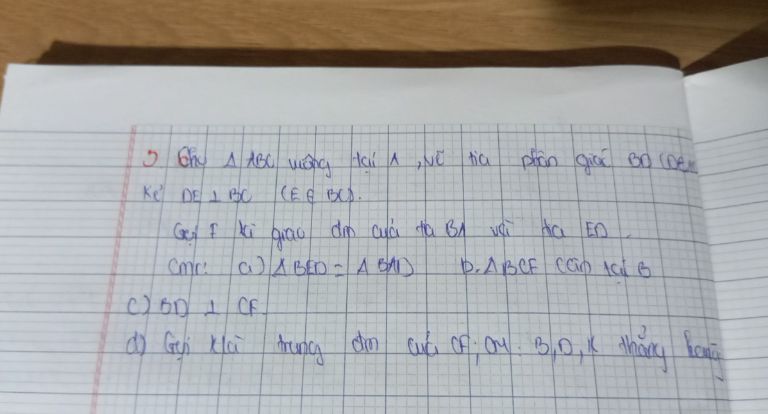 Cho Δ ABC vuông tại A, vẽ tia phân giác BD (DE
Kẻ DE ⊥ BC (E ∈ BC).
Gọi F là giao đm của tia BA với tia ED.
Cmr: a) Δ BED = Δ BAD b. Δ BCF cân tại B
c) BD ⊥ CF.
d) Gọi K là trung đm của CF; CM: B, D, K thẳng hàng